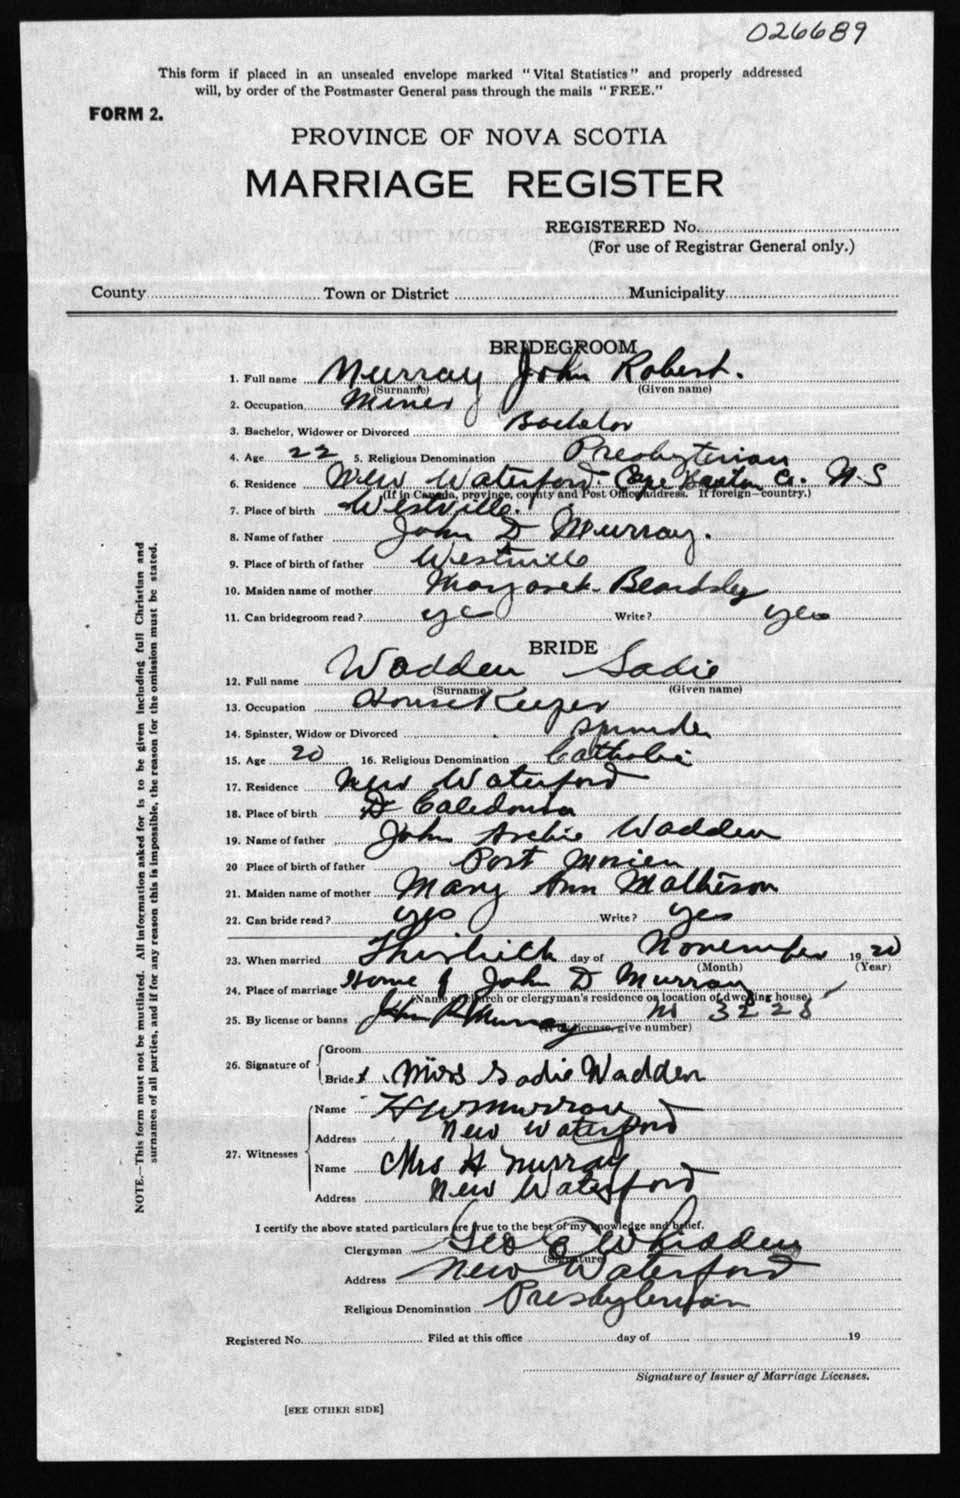 026689
This form if placed in an unsealed envelope marked "Vital Statistics" and properly addressed
will, by order of the Postmaster General pass through the mails "FREE."
FORM 2.
PROVINCE OF NOVA SCOTIA
MARRIAGE REGISTER
REGISTERED No.
(For use of Registrar General only.)
County Town or District Municipality
BRIDEGROOM
1. Full name Murray John Robert.
(Surname) (Given name)
2. Occupation Miner
3. Bachelor, Widower or Divorced Bachelor
4. Age 22 5. Religious Denomination Presbyterian
6. Residence New Waterford. Cape Breton Co. N.S
(If in Canada, province, county and Post Office address. If foreign—country.)
7. Place of birth Westville.
8. Name of father John D Murray.
9. Place of birth of father Westville
10. Maiden name of mother Margaret Beardsley
11. Can bridegroom read? yes Write? yes
BRIDE
12. Full name Wadden Sadie
(Surname) (Given name)
13. Occupation House Keeper
14. Spinster, Widow or Divorced Spinster
15. Age 20 16. Religious Denomination Catholic
17. Residence New Waterford
18. Place of birth Caledonia
19. Name of father John Archie Wadden
20 Place of birth of father Port Morien
21. Maiden name of mother Mary Ann Matheson
22. Can bride read? yes Write? yes
23. When married day of November 1920
(Month) (Year)
24. Place of marriage Home of John D Murray
(Name of church or clergyman's residence or location of dwelling house)
25. By license or banns John R Murray No 3228
(If by license, give number)
26. Signature of Groom
Bride x Miss Sadie Wadden
27. Witnesses
Name H W Murray
Address New Waterford
Name Mrs H Murray
Address New Waterford
I certify the above stated particulars are true to the best of my knowledge and belief.
Clergyman Geo C Whidden
(Signature)
Address New Waterford
Religious Denomination Presbyterian
Registered No. Filed at this office day of 19
Signature of Issuer of Marriage Licenses.
[SEE OTHER SIDE]
NOTE.—This form must not be mutilated. All information asked for is to be given including full Christian and
surnames of all parties, and if for any reason this is impossible, the reason for the omission must be stated.